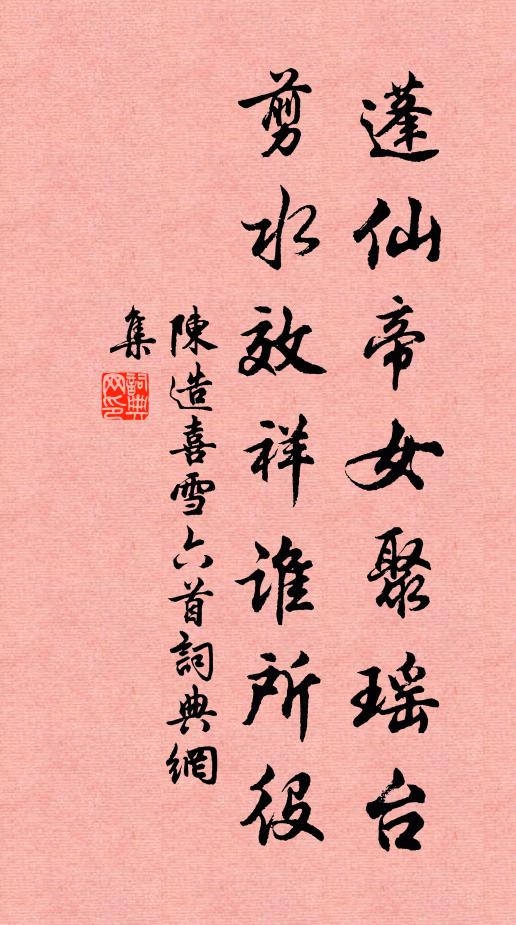 蓬仙帝女聚瑶台
剪水效祥谁所役
陳造喜雪六首詞典網
集
詞典
网印